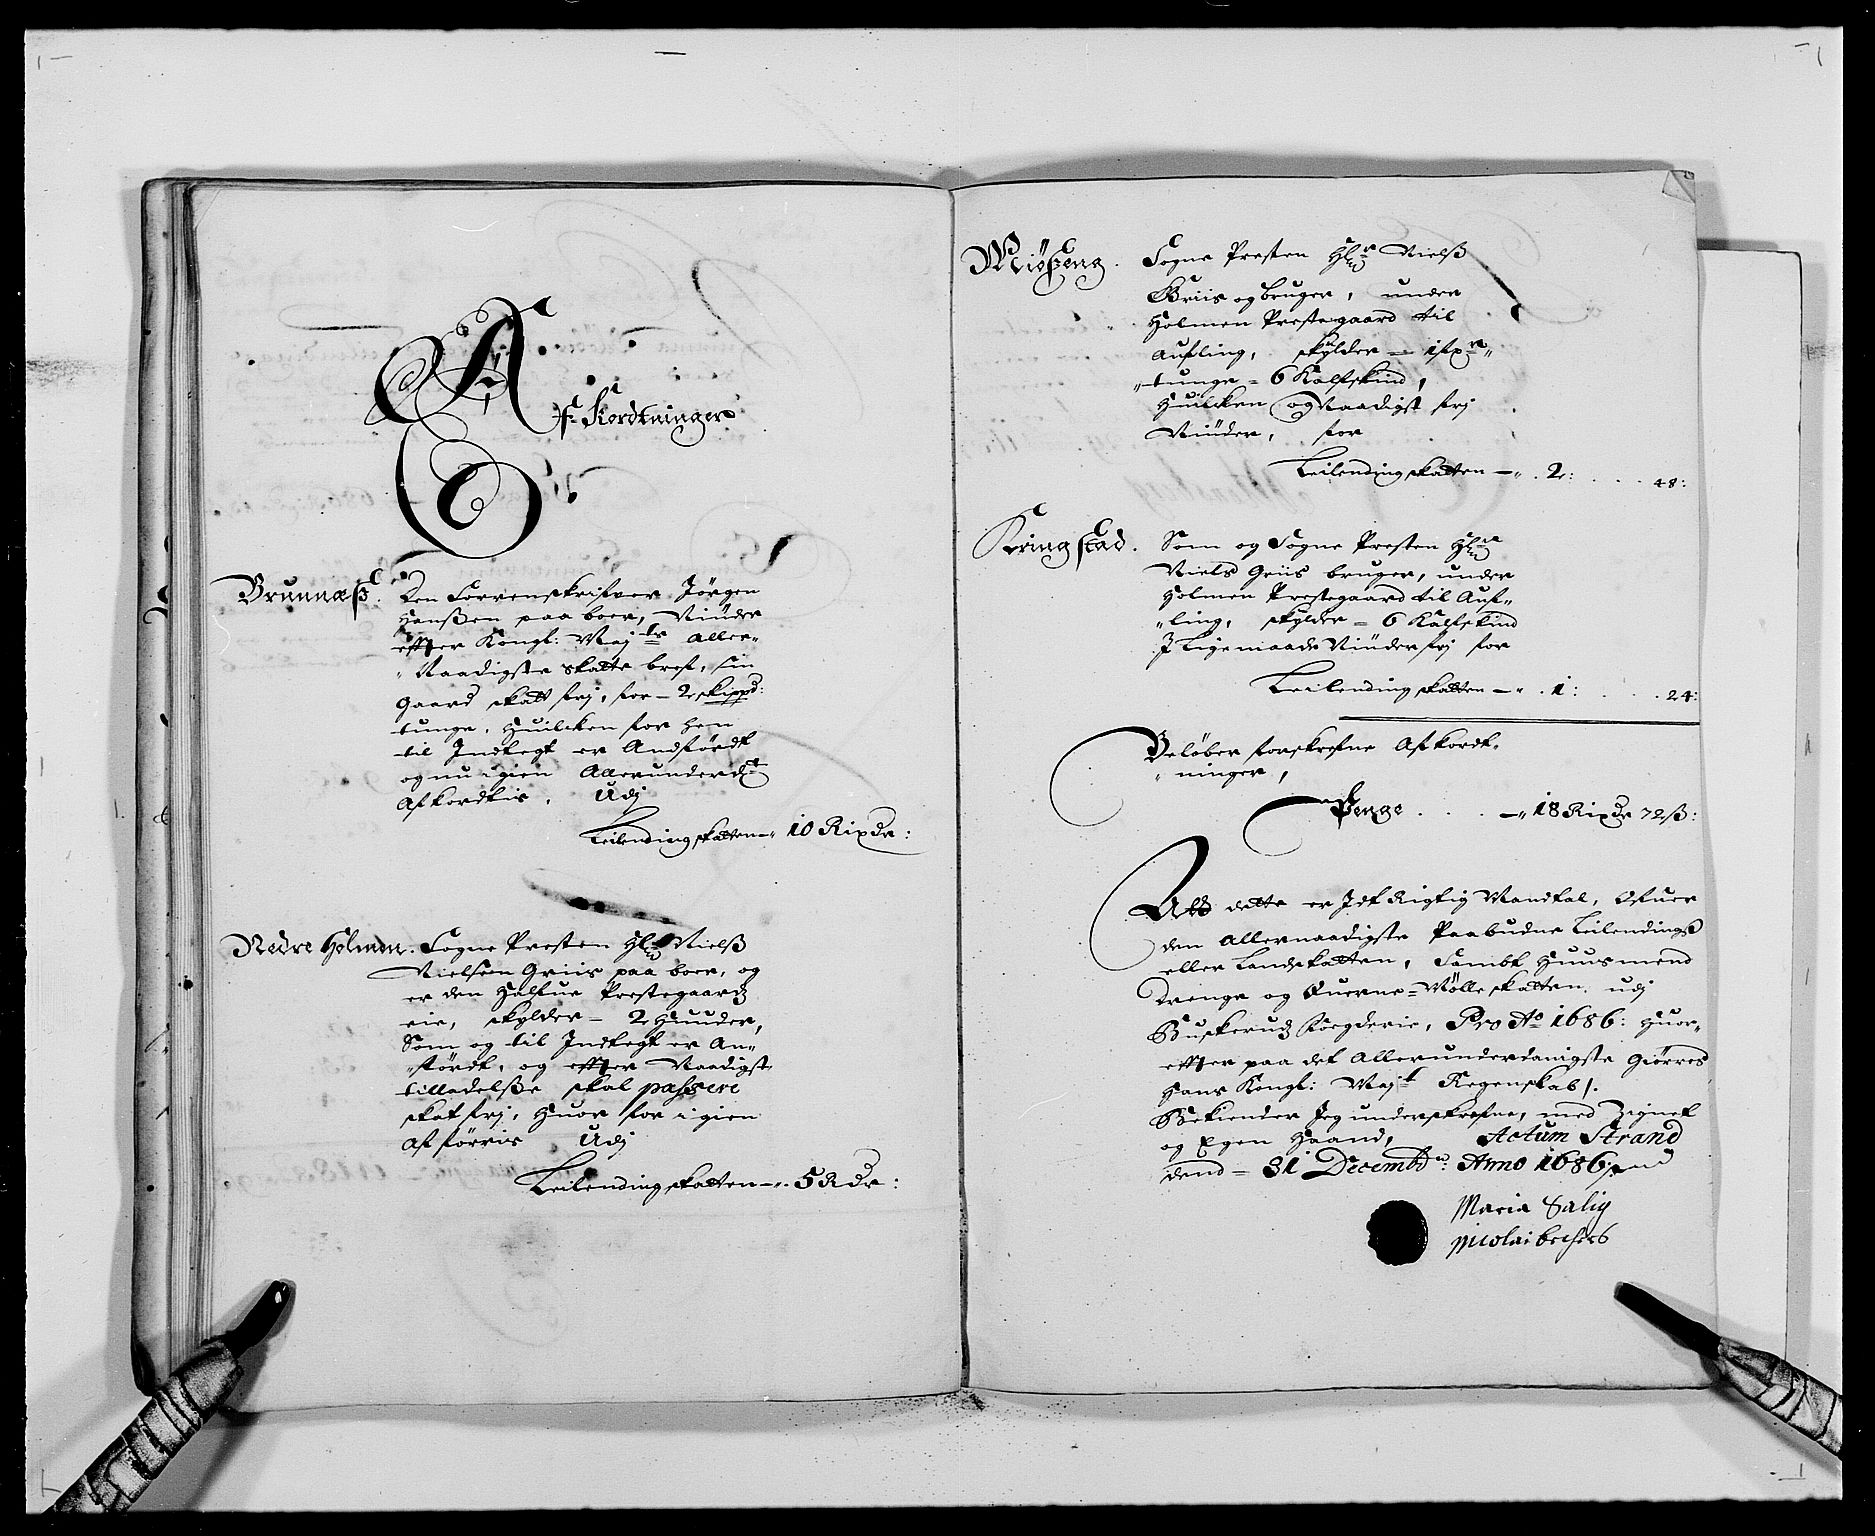 Af Kordtninger
Brunnæs. Den Sorrenskrifver Jørgen
Hansen paa boer, Niuder
effter Kongl: Maj:ts Aller-
Naadigste skatte bref, sin
Gaard skatt frj, for - 2 skippd:
tunge, Huilcken for hen
til Indtegt er Andførdt
og nu igien Allerunderd:st
Afkordtis, Udj
Leilending skatten - 10 Rixdr:
Nedre Holmen. Sogne Presten Hr Nielß
Nielsen Griis paa boer, og
er den Halfue Prestegaardz
eie, skylder - 2 Huuder,
Som og til Indtegt er An-
førdt, og effter Naadigst
tilladelße skal passere
skat frj, Huor for igien
Afførris Udj
Leilending skatten - 5 Rdr:
Miøßeng. Sogne Presten Hr Nielß
Griis og bruger, under
Holmen Prestegaard til
Aufling, skylder - 1 fr
tunge - 6 Kalfskind,
Huilcken og Naadigst frj
Niuder, for
Leilending skatten - 2: 48:
Kringstad. Som og Sogne Presten Hr
Niels Griis bruger, under
Holmen Prestegaard til Auf-
ling, skylder - 6 Kalfskind
I Ligemaade Niuder frj for
Leilending skatten - 1: 24:
Beløber forskrefne Afkordt-
ninger,
Penge - 18 Rixdr 72 ß:
Att dette er Idt Rigtig Mandtal, Ofuer
den Allernaadigste Paabudne Leilendings
eller Landskatten, Sambt Huusmend
Drenge og Querne-Mølle skatten, udj
Buskerudz Fogderie, Pro Ao 1686: Huor-
effter paa det Allerunderdanigste Giørres
Hans Kongl: Maj:t Regenskab /.
Bekiender Jeg underskrefne, med Zignet
og Egen Haand, Actum Strand
dend - 31 Decembr: Anno 1686
Maria Salig
Nicolai bechers